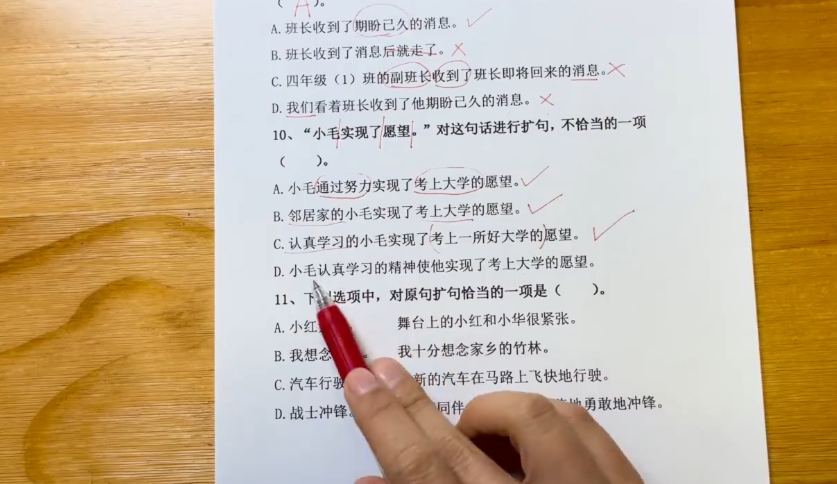 （ A ）。
A. 班长收到了期盼已久的消息。 ✓
B. 班长收到了消息后就走了。 ×
C. 四年级（1）班的副班长收到了班长即将回来的消息。 ×
D. 我们看着班长收到了他期盼已久的消息。 ×
10、“小毛实现了愿望。”对这句话进行扩句，不恰当的一项
（ ）。
A. 小毛通过努力实现了考上大学的愿望。 ✓
B. 邻居家的小毛实现了考上大学的愿望。 ✓
C. 认真学习的小毛实现了考上一所好大学的愿望。 ✓
D. 小毛认真学习的精神使他实现了考上大学的愿望。
11、下 选项中，对原句扩句恰当的一项是（ ）。
A. 小红 舞台上的小红和小华很紧张。
B. 我想念 。 我十分想念家乡的竹林。
C. 汽车行驶 新的汽车在马路上飞快地行驶。
D. 战士冲锋。 同伴 地勇敢地冲锋。